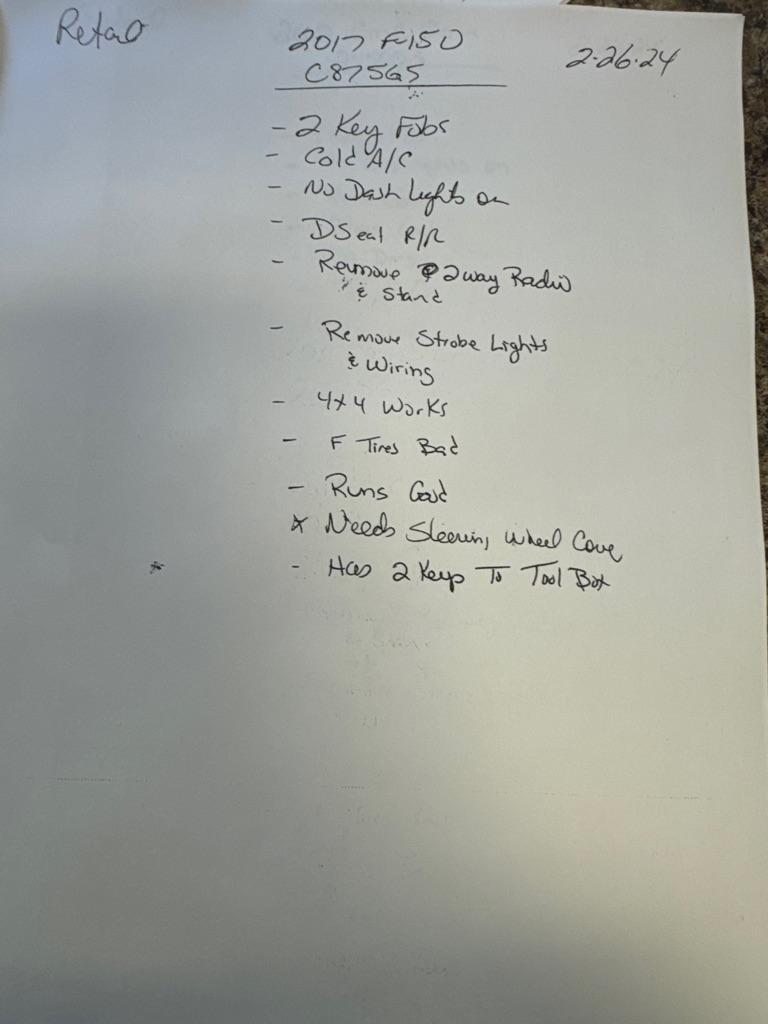 Retail
2017 F150
C87565
2-26-24
- 2 Key Fobs
- Cold A/C
- No Dash Lights on
- D Seat R/R
- Remove 2 way Radio
& Stand
- Remove Strobe Lights
& Wiring
- 4x4 Works
- F Tires Bad
- Runs Good
* Needs Steering Wheel Cove
* - Has 2 Keys To Tool Box